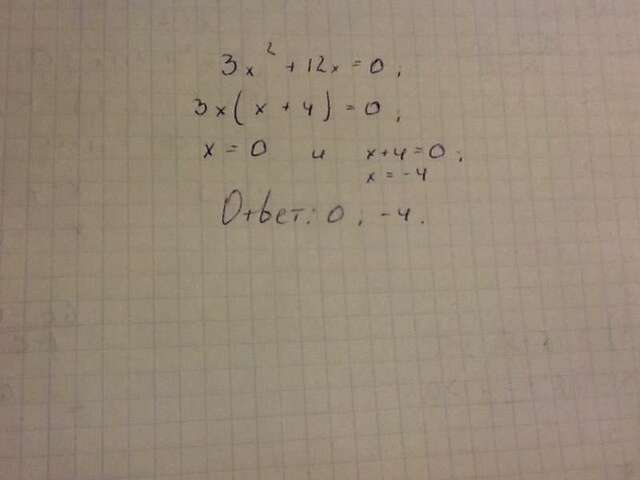 3x² + 12x = 0;
3x(x + 4) = 0;
x = 0 и x + 4 = 0;
x = -4
Ответ: 0; -4.